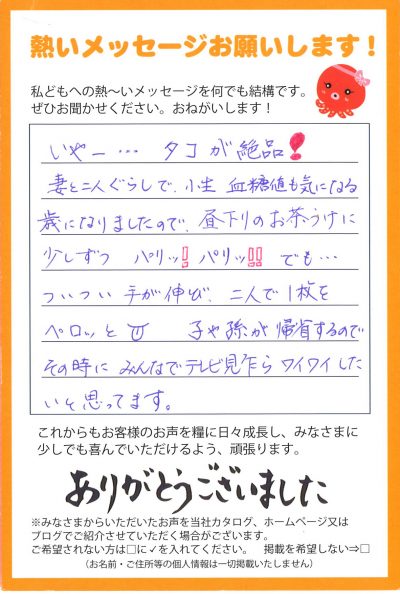 熱いメッセージお願いします！
私どもへの熱〜いメッセージを何でも結構です。
ぜひお聞かせください。おねがいします！
いやー… タコが絶品！
妻と二人ぐらしで、小生 血糖値も気になる
歳になりましたので、昼下りのお茶うけに
少しずつ パリッ! パリッ!! でも…
ついつい 手が伸び、二人で1枚を
ペロッと 子や孫が帰省するので
その時に みんなでテレビ見乍ら ワイワイした
いと思ってます。
これからもお客様のお声を糧に日々成長し、みなさまに
少しでも喜んでいただけるよう、頑張ります。
ありがとうございました
※みなさまからいただいたお声を当社カタログ、ホームページ又は
ブログでご紹介させていただく場合がございます。
ご希望されない方は□に✓を入れてください。 掲載を希望しない⇒□
（お名前・ご住所等の個人情報は一切掲載いたしません）